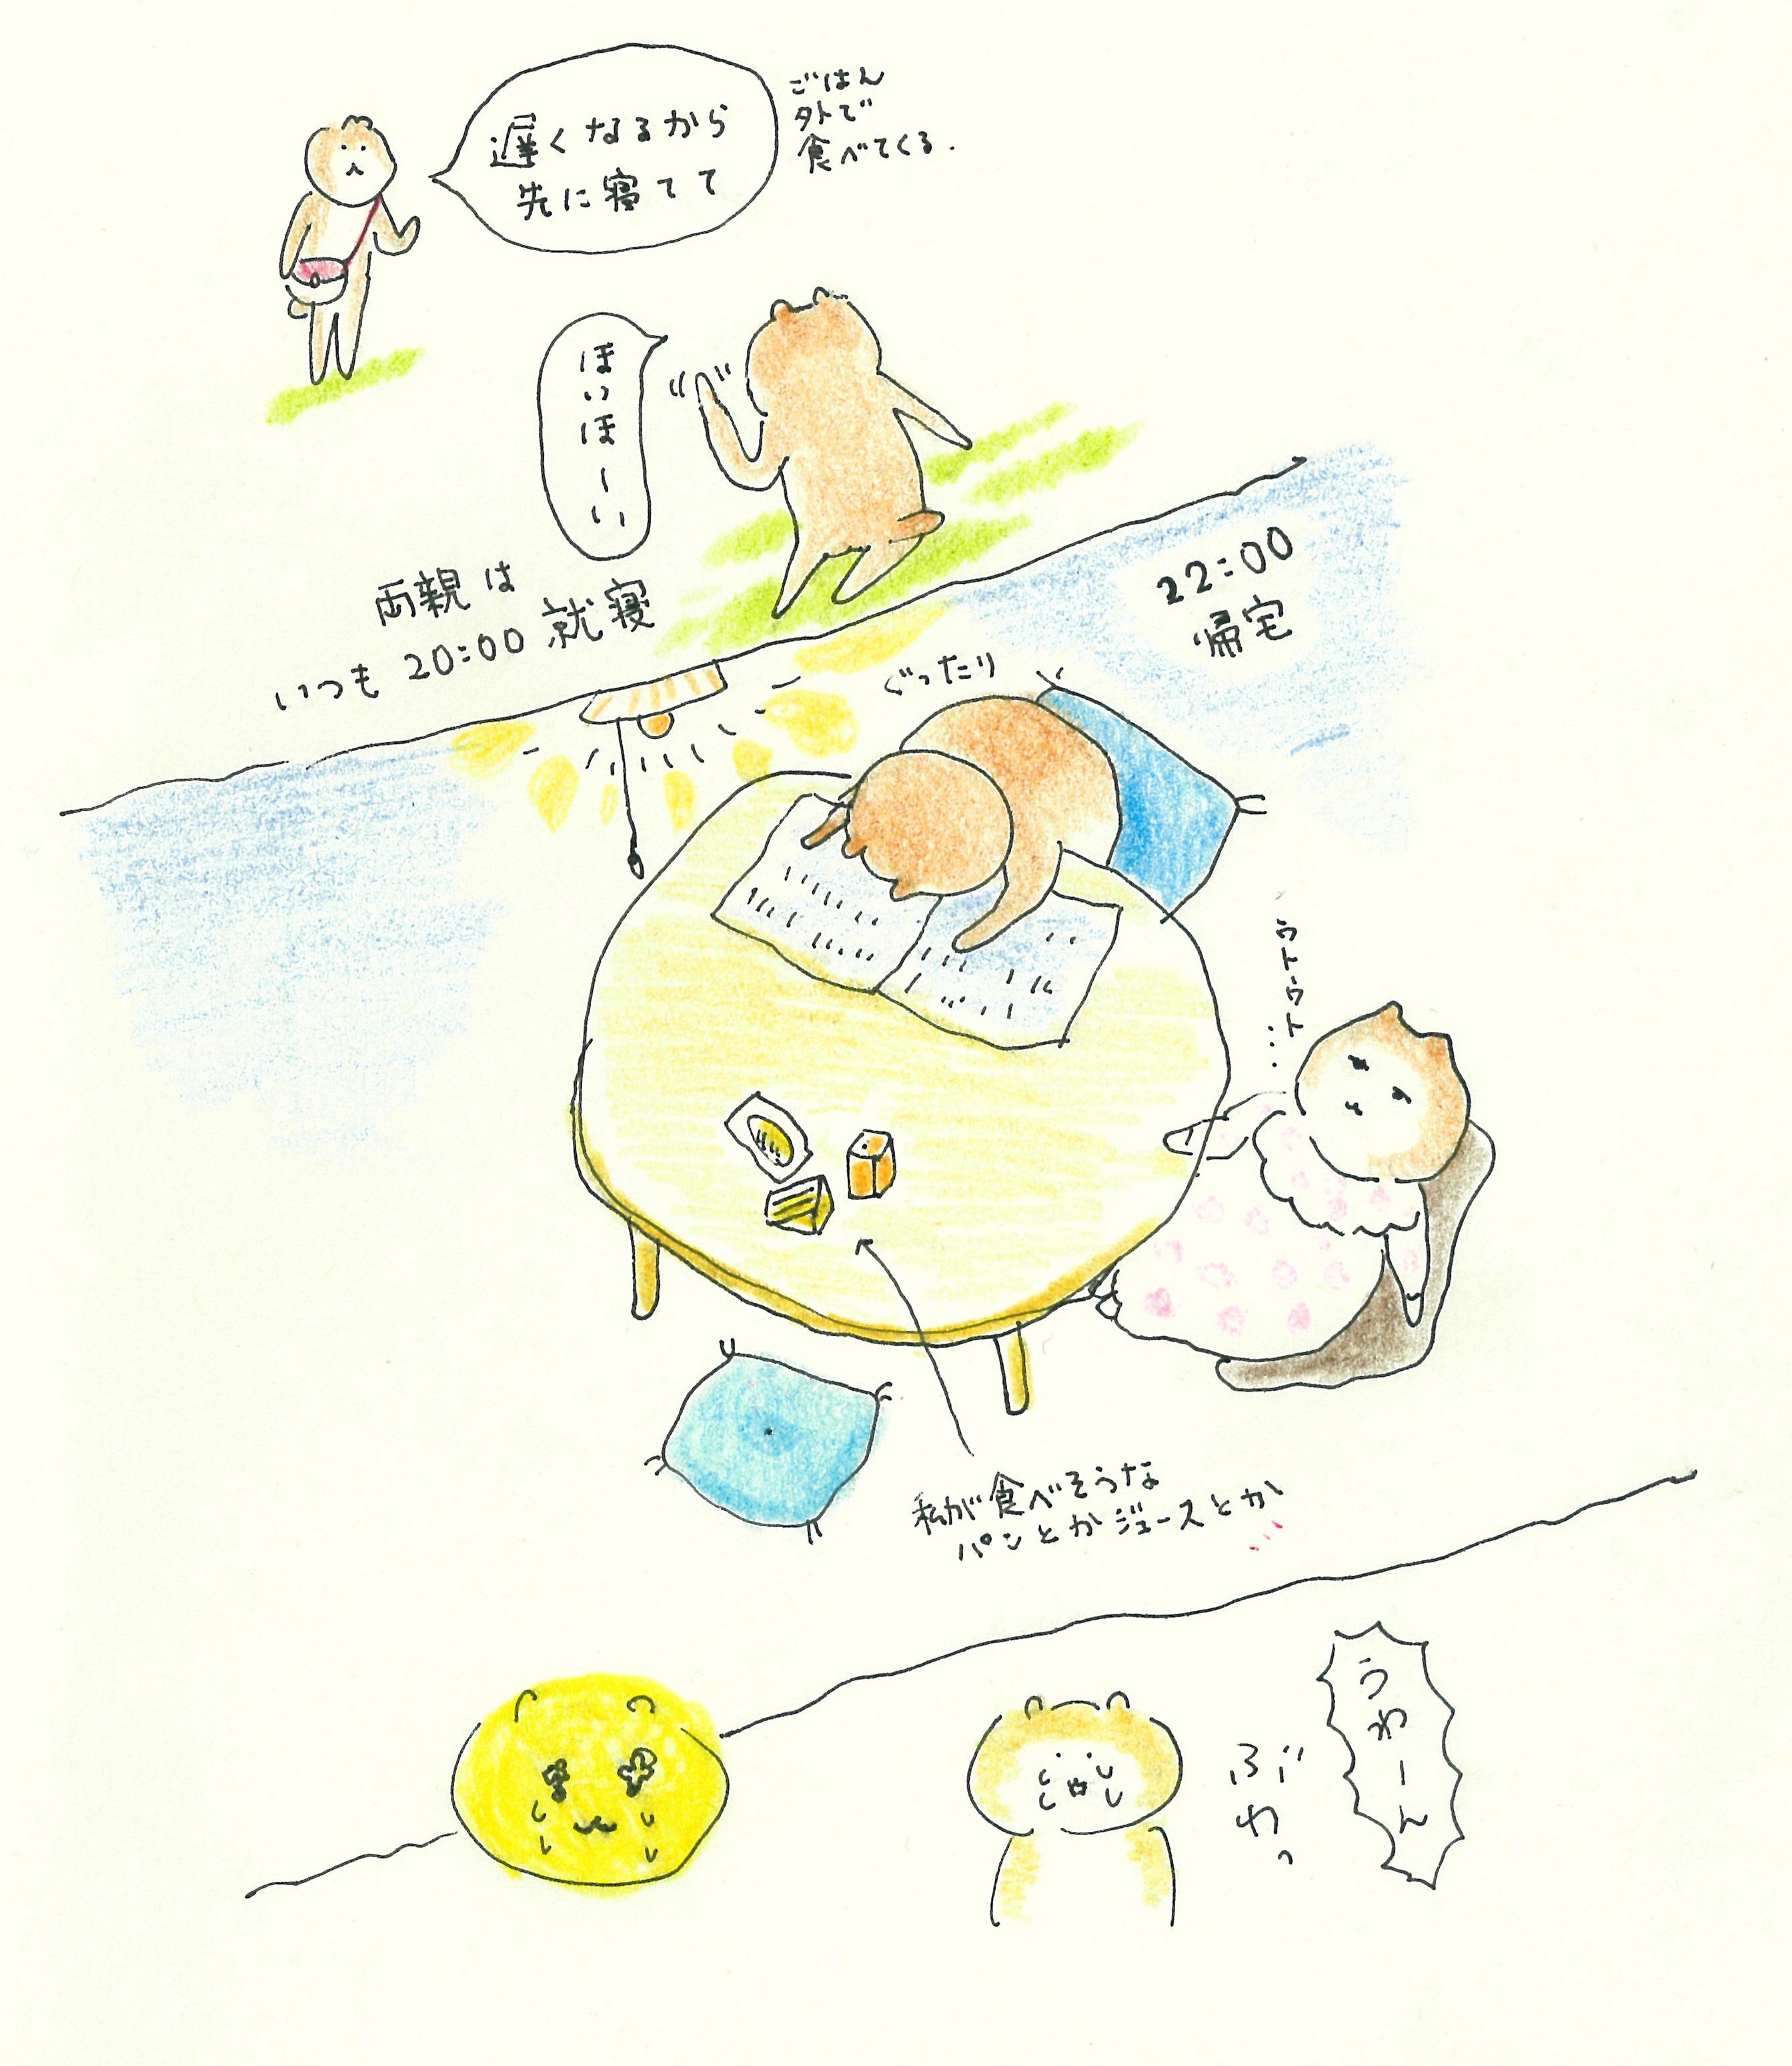 遅くなるから
先に寝てて
ごはん
外で
食べてくる.
ほいほーい
両親は
いつも 20:00 就寝
22:00
帰宅
ぐったり
ウトウト…
私が食べそうな
パンとかジュースとか
うわーん
ぶわっ